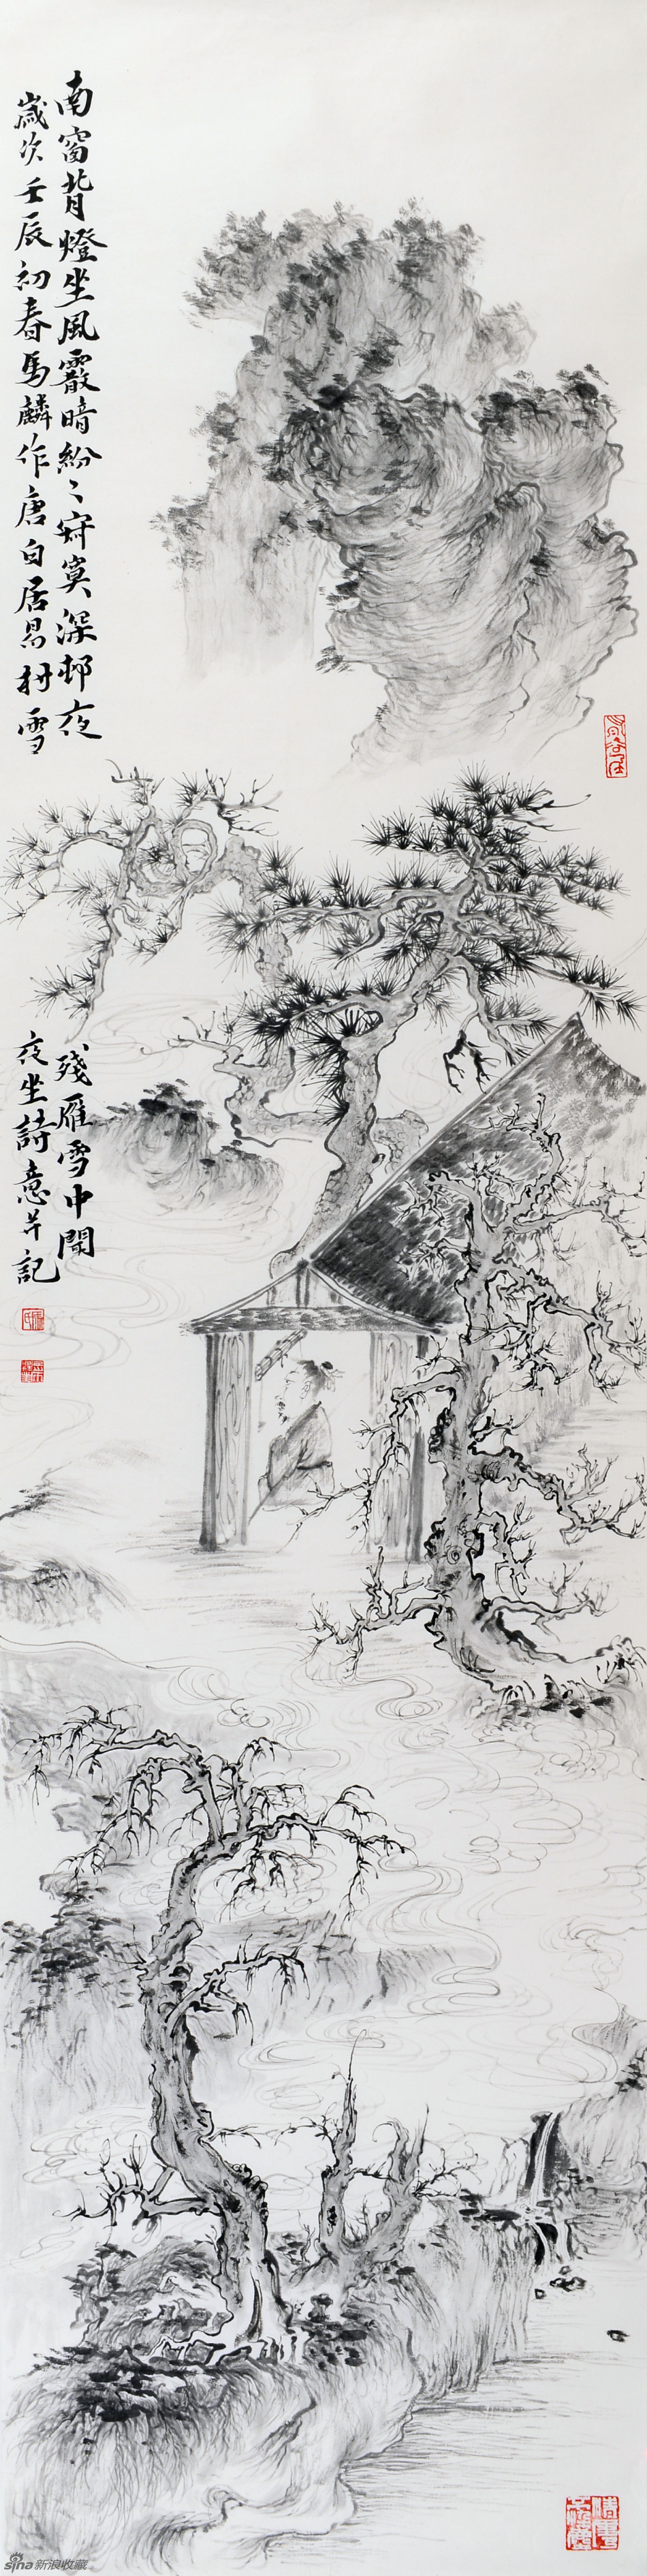 南窗背燈坐風霰暗紛〻寂寞深邨夜
殘雁雪中聞
歲次壬辰初春馬麟作唐白居易村雪
夜坐詩意并記
sina新浪收藏